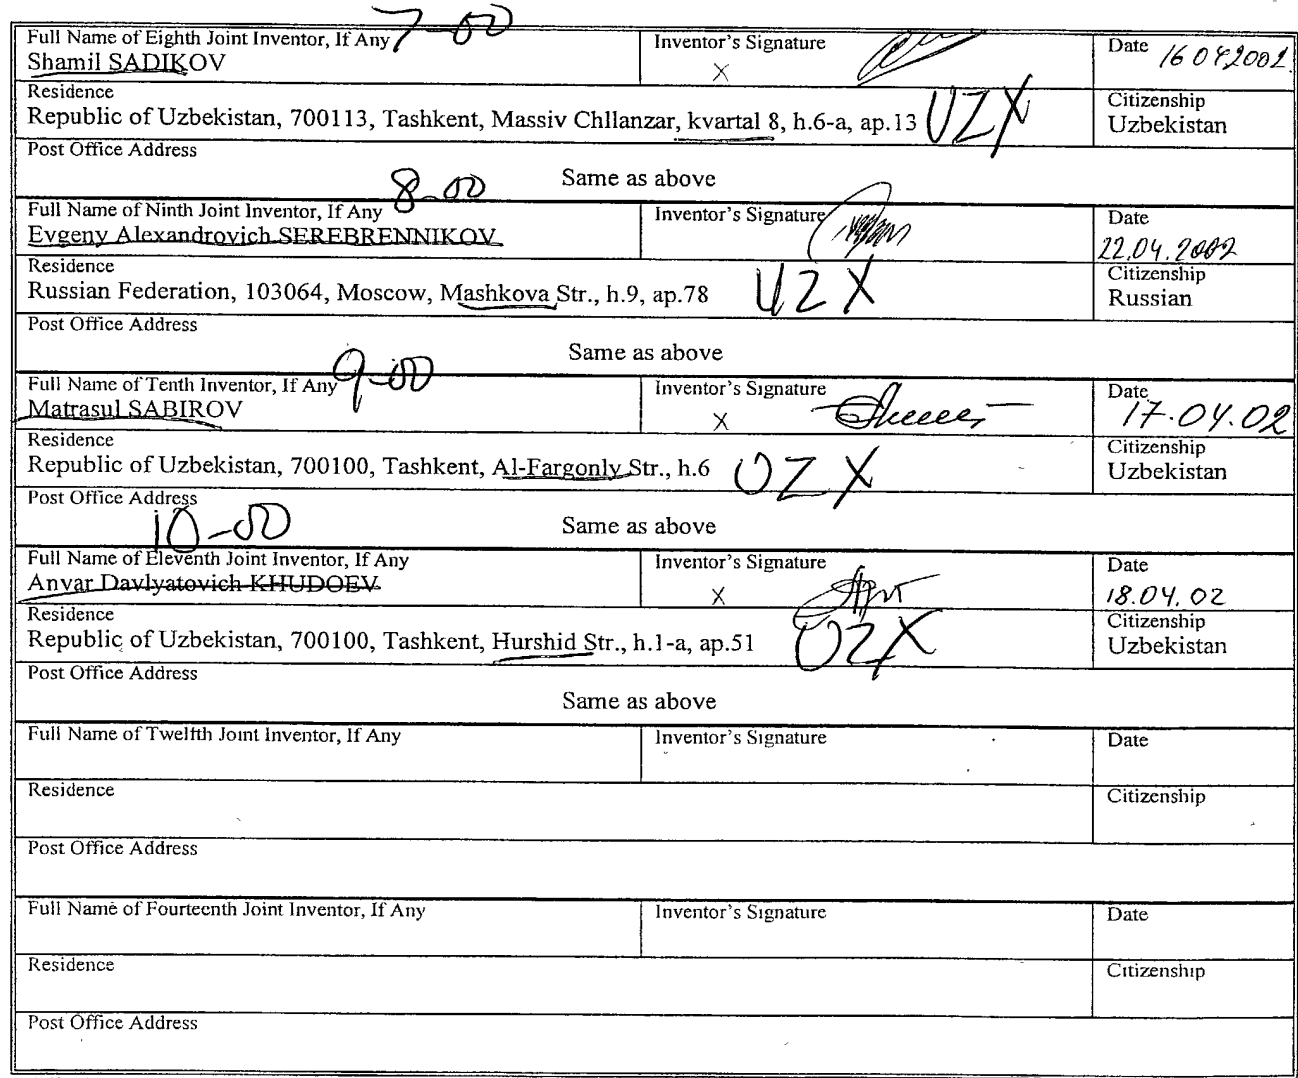 7-00
Full Name of Eighth Joint Inventor, If Any
Shamil SADIKOV
Inventor's Signature
X
Date
16 04 2002
Residence
Republic of Uzbekistan, 700113, Tashkent, Massiv Chllanzar, kvartal 8, h.6-a, ap.13
UZX
Citizenship
Uzbekistan
Post Office Address
Same as above
8-00
Full Name of Ninth Joint Inventor, If Any
Evgeny Alexandrovich SEREBRENNIKOV
Inventor's Signature
Date
22.04.2002
Residence
Russian Federation, 103064, Moscow, Mashkova Str., h.9, ap.78
UZX
Citizenship
Russian
Post Office Address
Same as above
9-00
Full Name of Tenth Inventor, If Any
Matrasul SABIROV
Inventor's Signature
X
Date
17.04.02
Residence
Republic of Uzbekistan, 700100, Tashkent, Al-Fargonly Str., h.6
UZX
Citizenship
Uzbekistan
Post Office Address
Same as above
10-00
Full Name of Eleventh Joint Inventor, If Any
Anvar Davlyatovich KHUDOEV
Inventor's Signature
X
Date
18.04.02
Residence
Republic of Uzbekistan, 700100, Tashkent, Hurshid Str., h.1-a, ap.51
UZX
Citizenship
Uzbekistan
Post Office Address
Same as above
Full Name of Twelfth Joint Inventor, If Any
Inventor's Signature
Date
Residence
Citizenship
Post Office Address
Full Name of Fourteenth Joint Inventor, If Any
Inventor's Signature
Date
Residence
Citizenship
Post Office Address